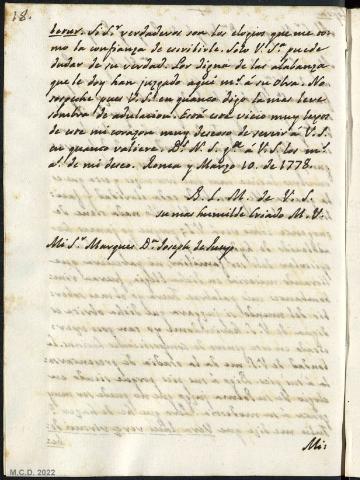 18.
teres. Si S.r verdaderos son los elogios que me co=
mo la confianza de escribirle. Solo V.S. puede
dudar de su verdad. Por digna de las alabanzas
que le doy han juzgado aqui m.s à su obra. No
sospeche pues V.S. en quanto digo la mas leve
sombra de adulacion. Està este vicio muy lexos
de ese mi corazon muy deseoso de servir à V.S.
en quanto valiere. D.s N. S. g.e à V.S. los m.s
a.s de mi deseo. Ronca y Marzo 10. de 1778.
B. L. M. de V. S.
su mas humilde Criado M. V.
Mi S.r Marques D.n Joseph de
Mi:
M.C.D. 2022